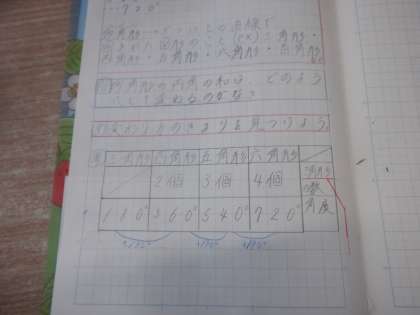 720°
多角形…どっこの直線で
かこまれた図形のこと(ex)三角形・
四角形・五角形・六角形・七角形
多角形の内角の和は、どのよう
にして変わるのかな?
変わり方のきまりを見つけよう。
三角形 四角形 五角形 六角形
2個 3個 4個 三角形の数
180° 360° 540° 720° 角度
+180° +180° +180°